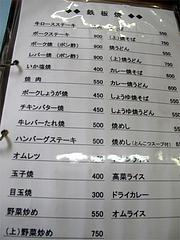 ◆◆ 鉄板焼 ◆◆
牛ロースステーキ
ポークステーキ 900 (上)焼そば 750
ポーク焼(ポン酢) 900 焼うどん 550
レバー焼(ポン酢) 500 (上)焼うどん 750
いか塩焼 500 カレー焼そば 650
焼肉 550 カレー焼うどん 650
ポークしょうが焼 450 しょうゆ焼そば 550
チキンバター焼 450 しょうゆ焼うどん 550
牛レバーたれ焼 500 焼めし 500
ハンバーグステーキ 500 焼めし(とんこつスープ付)
オムレツ 450 カレー焼めし
玉子焼 400 高菜ライス
目玉焼 300 ドライカレー
野菜炒め 550 オムライス
(上)野菜炒め 750